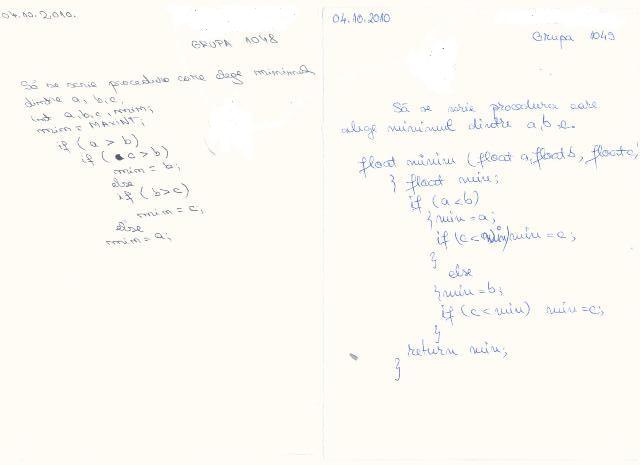 04.10.2010.
GRUPA 1048
Să se scrie procedura care alege minimul
dintre a, b, c.
int a, b, c, mim;
mim = MAXINT;
if (a > b)
if (c > b)
mim = b;
else
if (b > c)
mim = c;
else
mim = a;
04.10.2010
Grupa 1049
Să se scrie procedura care
alege minimul dintre a, b, c.
float minim (float a, float b, float c)
} float min;
if (a < b)
{ min = a;
if (c < min) min = c;
}
else
{ min = b;
if (c < min) min = c;
}
return min;
}